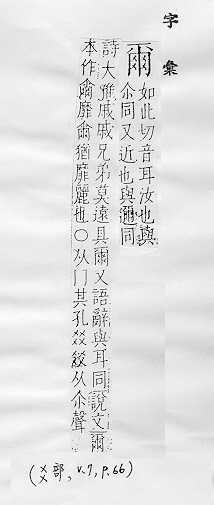 字彙
爾 如此切音耳汝也與
尒同又近也與邇同
詩大雅戚戚兄弟莫遠具爾又語辭與耳同說文爾
本作爾靡爾猶靡麗也〇从冂其孔㸚㸚从尒聲
(爻部, v.7, p.66)